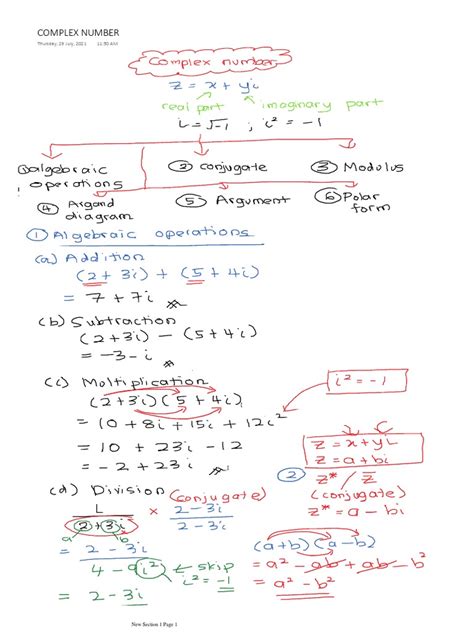 COMPLEX NUMBER
Thursday, 29 July, 2021 11:30 AM
Complex number
z = x + yi
real part imaginary part
i = √-1 ; i² = -1
① algebraic operations
② conjugate
③ Modulus
④ Argand diagram
⑤ Argument
⑥ Polar form
① Algebraic operations
(a) Addition
(2 + 3i) + (5 + 4i)
= 7 + 7i
(b) Subtraction
(2 + 3i) - (5 + 4i)
= -3 - i
(c) Multiplication
(2 + 3i)(5 + 4i)
= 10 + 8i + 15i + 12i²
= 10 + 23i - 12
= -2 + 23i
i² = -1
(d) Division (conjugate)
1 / (2 + 3i) × (2 - 3i) / (2 - 3i)
a b
= (2 - 3i) / (4 - 9i²) ← skip i² = -1
= 2 - 3i
②
z = x + yi
z = a + bi
z* / z̅
(conjugate)
z* = a - bi
(a+b)(a-b)
= a² - ab + ab - b²
= a² - b²
New Section 1 Page 1